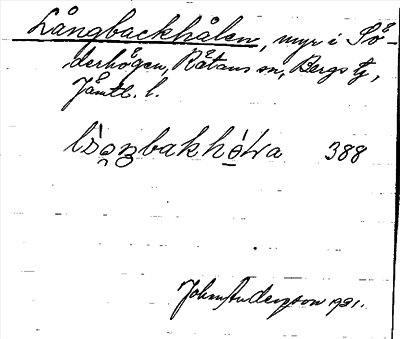 Långbackhålen, myr i Sö-
derhögen, Rätans sn, Bergs tg,
Jämtl. l.
388
John Anderzson 1931.